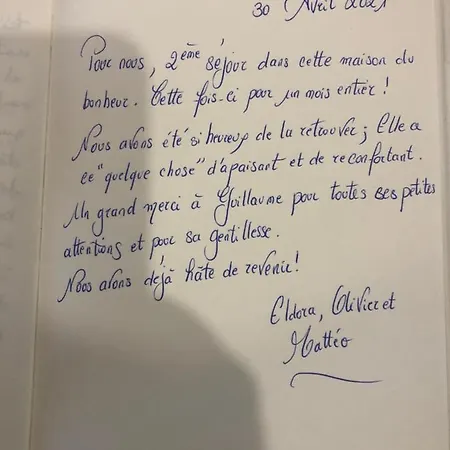 30 Avril 2021
Pour nous, 2ème séjour dans cette maison du
bonheur. Cette fois-ci pour un mois entier !
Nous avons été si heureux de la retrouver ; Elle a
ce "quelque chose" d'apaisant et de reconfortant.
Un grand merci à Guillaume pour toutes ses petites
attentions et pour sa gentillesse.
Nous avons déjà hâte de revenir !
Eldora, Olivier et
Mattéo